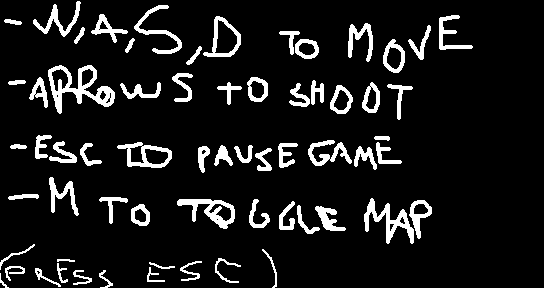 - W, A, S, D TO MOVE
- ARROWS TO SHOOT
- ESC TO PAUSE GAME
- M TO TOGGLE MAP
(PRESS ESC)